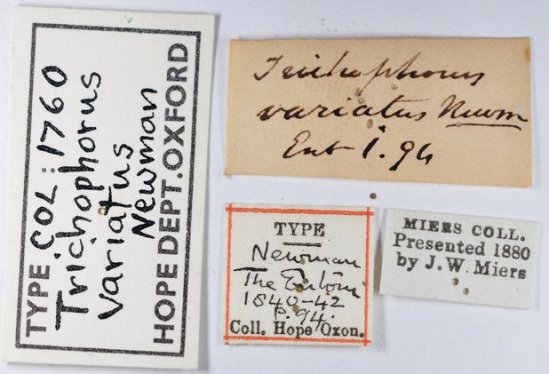 TYPE COL: 1760
Trichophorus
variatus
Newman
HOPE DEPT. OXFORD
Trichophorus
variatus Newm
Ent i. 94
TYPE
Newman
The Entom
1840-42
P. 94.
Coll. Hope Oxon.
MIERS COLL.
Presented 1880
by J. W. Miers